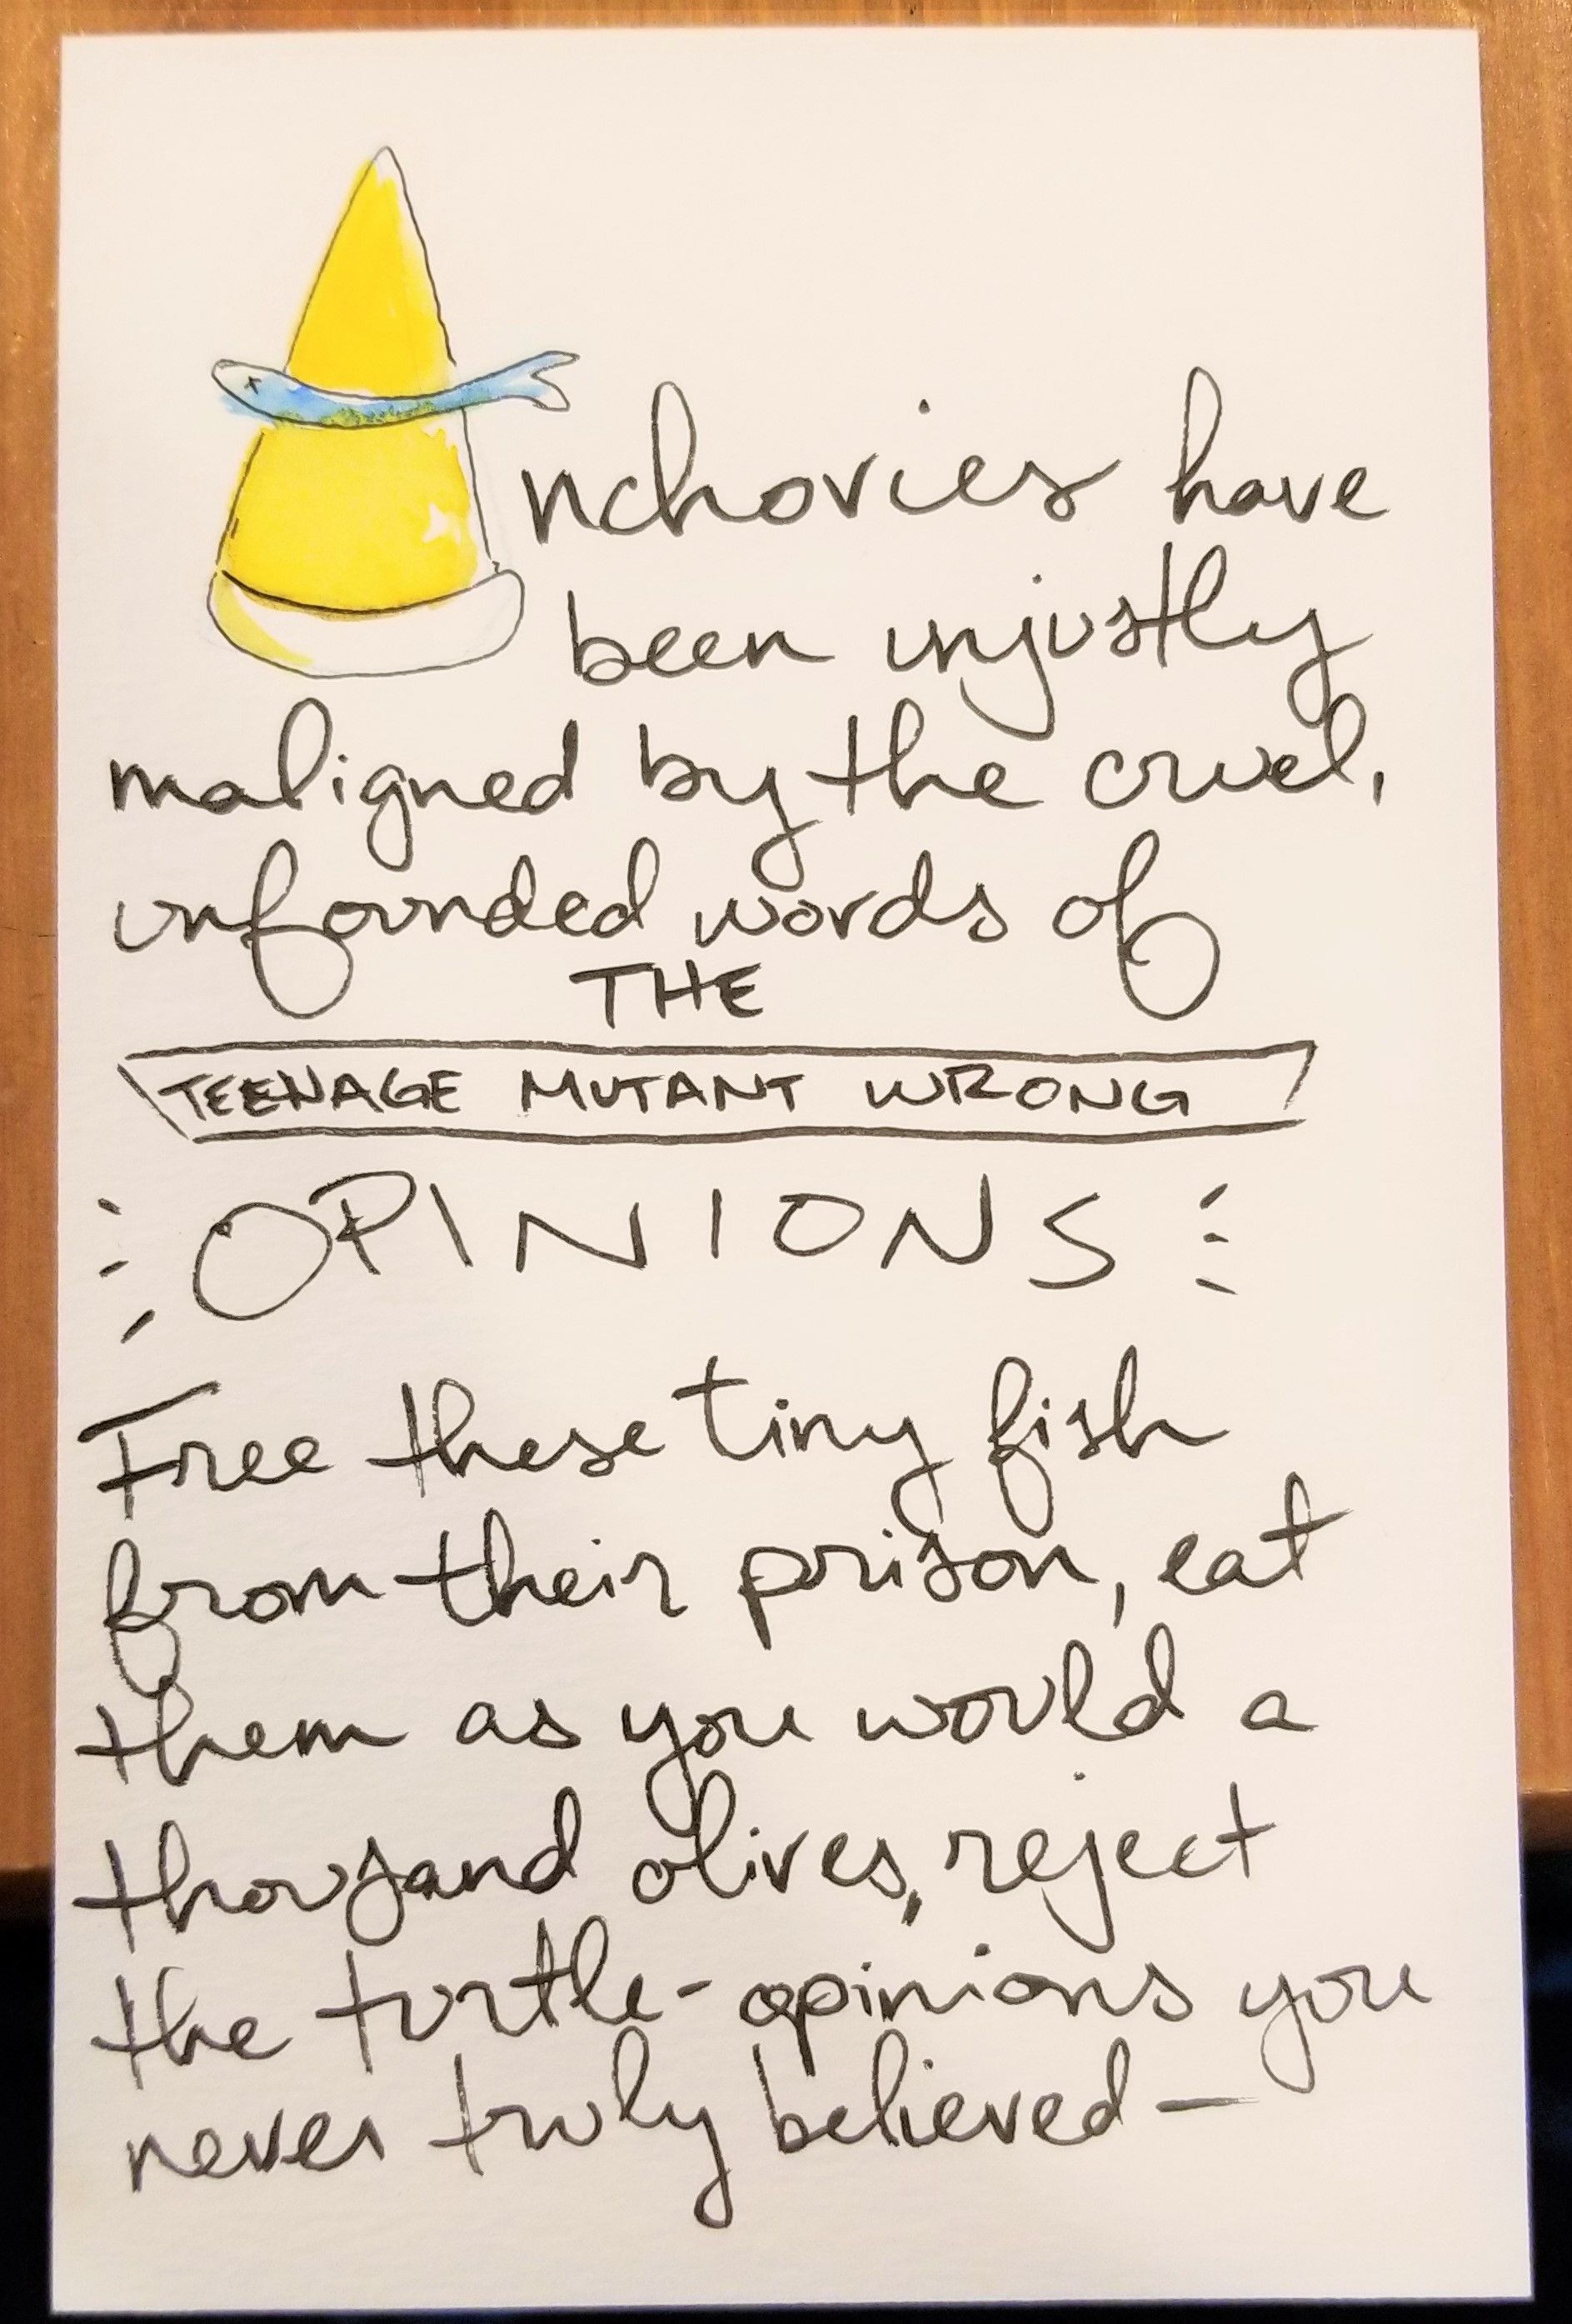 Anchovies have
been unjustly
maligned by the cruel,
unfounded words of
THE
TEENAGE MUTANT WRONG
OPINIONS
Free these tiny fish
from their prison, eat
them as you would a
thousand olives, reject
the turtle-opinions you
never truly believed—